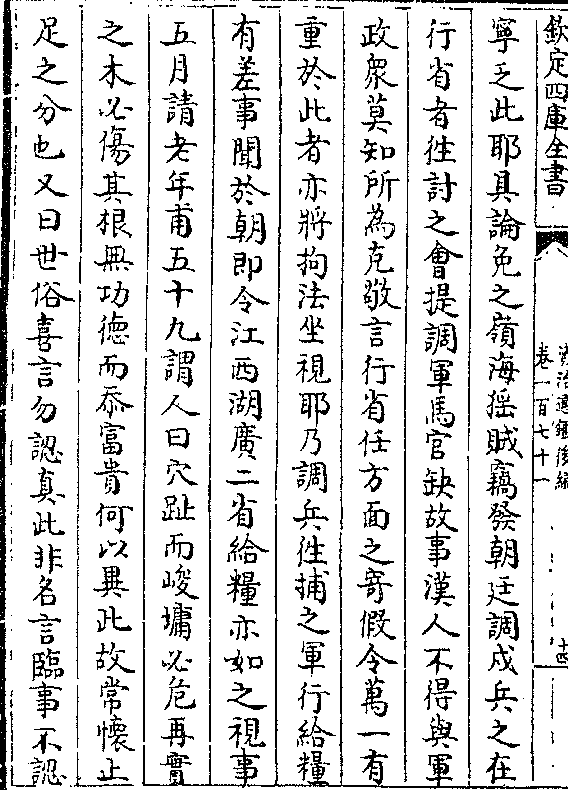 欽定四庫全書
資治通鑑後編
卷一百七十一
十四
寧乏此耶具論免之嶺海猺賊竊發朝廷調戍兵之在
行省者徃討之會提調軍馬官缺故事漢人不得與軍
政衆莫知所為克敬言行省任方面之寄假令萬一有
重於此者亦將拘法坐視耶乃調兵徃捕之軍行給糧
有差事聞於朝即令江西湖廣二省給糧亦如之視事
五月請老年甫五十九謂人曰穴趾而峻墉必危再實
之木必傷其根無功德而忝富貴何以異此故常懷止
足之分也又曰世俗喜言勿認真此非名言臨事不認